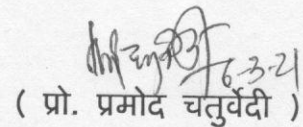 6-3-21
( प्रो. प्रमोद चतुर्वेदी )